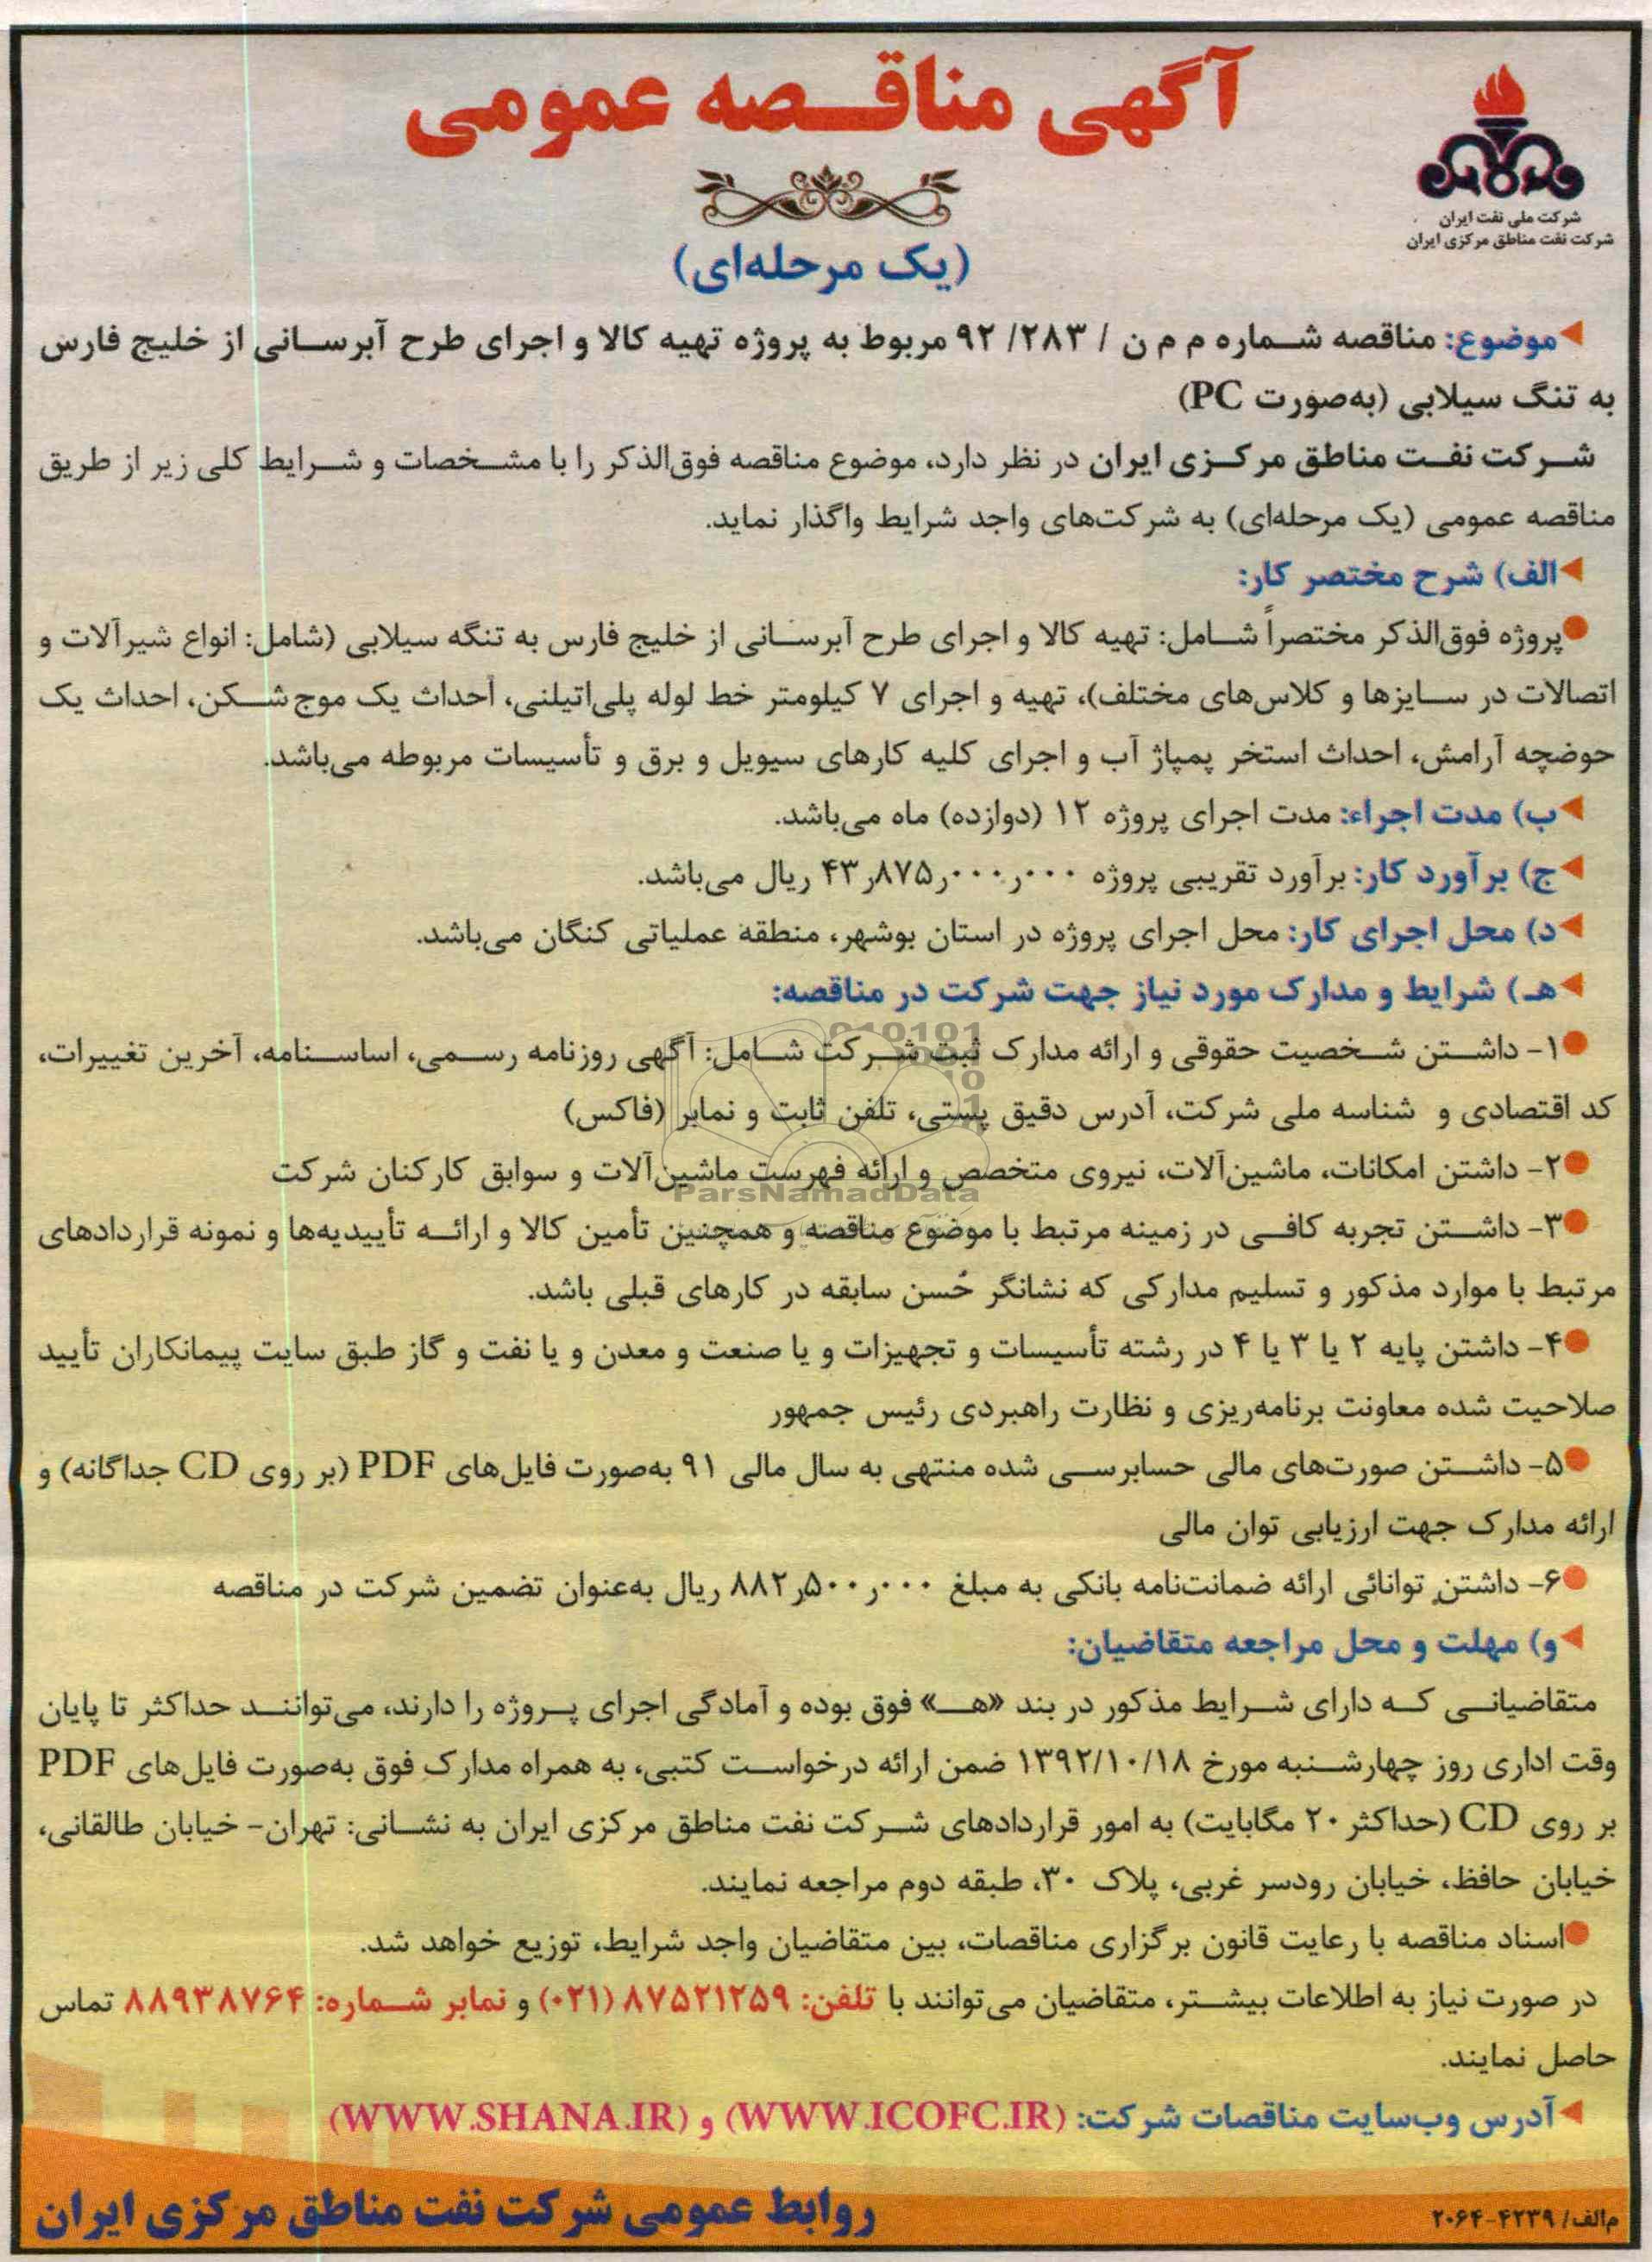 آگهی مناقصه عمومی
شرکت ملی نفت ایران
شرکت نفت مناطق مرکزی ایران
(یک مرحله‌ای)
موضوع: مناقصه شماره م م ن / ۲۸۳/ ۹۲ مربوط به پروژه تهیه کالا و اجرای طرح آبرسانی از خلیج فارس
به تنگ سیلابی (به‌صورت PC)
شرکت نفت مناطق مرکزی ایران در نظر دارد، موضوع مناقصه فوق‌الذکر را با مشخصات و شرایط کلی زیر از طریق
مناقصه عمومی (یک مرحله‌ای) به شرکت‌های واجد شرایط واگذار نماید.
الف) شرح مختصر کار:
پروژه فوق‌الذکر مختصراً شامل: تهیه کالا و اجرای طرح آبرسانی از خلیج فارس به تنگه سیلابی (شامل: انواع شیرآلات و
اتصالات در سایزها و کلاس‌های مختلف)، تهیه و اجرای ۷ کیلومتر خط لوله پلی‌اتیلنی، احداث یک موج‌شکن، احداث یک
حوضچه آرامش، احداث استخر پمپاژ آب و اجرای کلیه کارهای سیویل و برق و تأسیسات مربوطه می‌باشد.
ب) مدت اجراء: مدت اجرای پروژه ۱۲ (دوازده) ماه می‌باشد.
ج) برآورد کار: برآورد تقریبی پروژه ۴۳ر۸۷۵ر۰۰۰ر۰۰۰ ریال می‌باشد.
د) محل اجرای کار: محل اجرای پروژه در استان بوشهر، منطقه عملیاتی کنگان می‌باشد.
هـ) شرایط و مدارک مورد نیاز جهت شرکت در مناقصه:
۱- داشتن شخصیت حقوقی و ارائه مدارک ثبت شرکت شامل: آگهی روزنامه رسمی، اساسنامه، آخرین تغییرات،
کد اقتصادی و شناسه ملی شرکت، آدرس دقیق پستی، تلفن ثابت و نمابر (فاکس)
۲- داشتن امکانات، ماشین‌آلات، نیروی متخصص و ارائه فهرست ماشین‌آلات و سوابق کارکنان شرکت
ParsNamadData
۳- داشتن تجربه کافی در زمینه مرتبط با موضوع مناقصه و همچنین تأمین کالا و ارائه تأییدیه‌ها و نمونه قراردادهای
مرتبط با موارد مذکور و تسلیم مدارکی که نشانگر حُسن سابقه در کارهای قبلی باشد.
۴- داشتن پایه ۲ یا ۳ یا ۴ در رشته تأسیسات و تجهیزات و یا صنعت و معدن و یا نفت و گاز طبق سایت پیمانکاران تأیید
صلاحیت شده معاونت برنامه‌ریزی و نظارت راهبردی رئیس جمهور
۵- داشتن صورت‌های مالی حسابرسی شده منتهی به سال مالی ۹۱ به‌صورت فایل‌های PDF (بر روی CD جداگانه) و
ارائه مدارک جهت ارزیابی توان مالی
۶- داشتن توانائی ارائه ضمانت‌نامه بانکی به مبلغ ۸۸۲ر۵۰۰ر۰۰۰ ریال به‌عنوان تضمین شرکت در مناقصه
و) مهلت و محل مراجعه متقاضیان:
متقاضیانی که دارای شرایط مذکور در بند «هـ» فوق بوده و آمادگی اجرای پروژه را دارند، می‌توانند حداکثر تا پایان
وقت اداری روز چهارشنبه مورخ ۱۳۹۲/۱۰/۱۸ ضمن ارائه درخواست کتبی، به همراه مدارک فوق به‌صورت فایل‌های PDF
بر روی CD (حداکثر ۲۰ مگابایت) به امور قراردادهای شرکت نفت مناطق مرکزی ایران به نشانی: تهران- خیابان طالقانی،
خیابان حافظ، خیابان رودسر غربی، پلاک ۳۰، طبقه دوم مراجعه نمایند.
اسناد مناقصه با رعایت قانون برگزاری مناقصات، بین متقاضیان واجد شرایط، توزیع خواهد شد.
در صورت نیاز به اطلاعات بیشتر، متقاضیان می‌توانند با تلفن: ۸۷۵۲۱۲۵۹ (۰۲۱) و نمابر شماره: ۸۸۹۳۸۷۶۴ تماس
حاصل نمایند.
آدرس وب‌سایت مناقصات شرکت: (WWW.ICOFC.IR) و (WWW.SHANA.IR)
روابط عمومی شرکت نفت مناطق مرکزی ایران
م‌الف/ ۴۲۳۹-۲۰۶۴